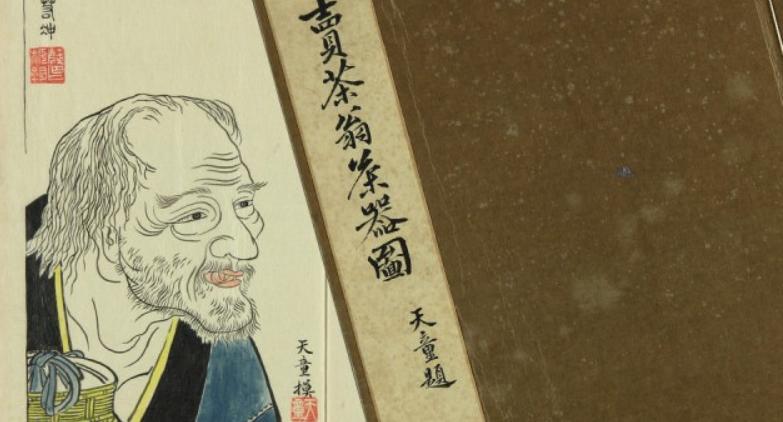 賣茶翁茶器圖
天童題
天童摸